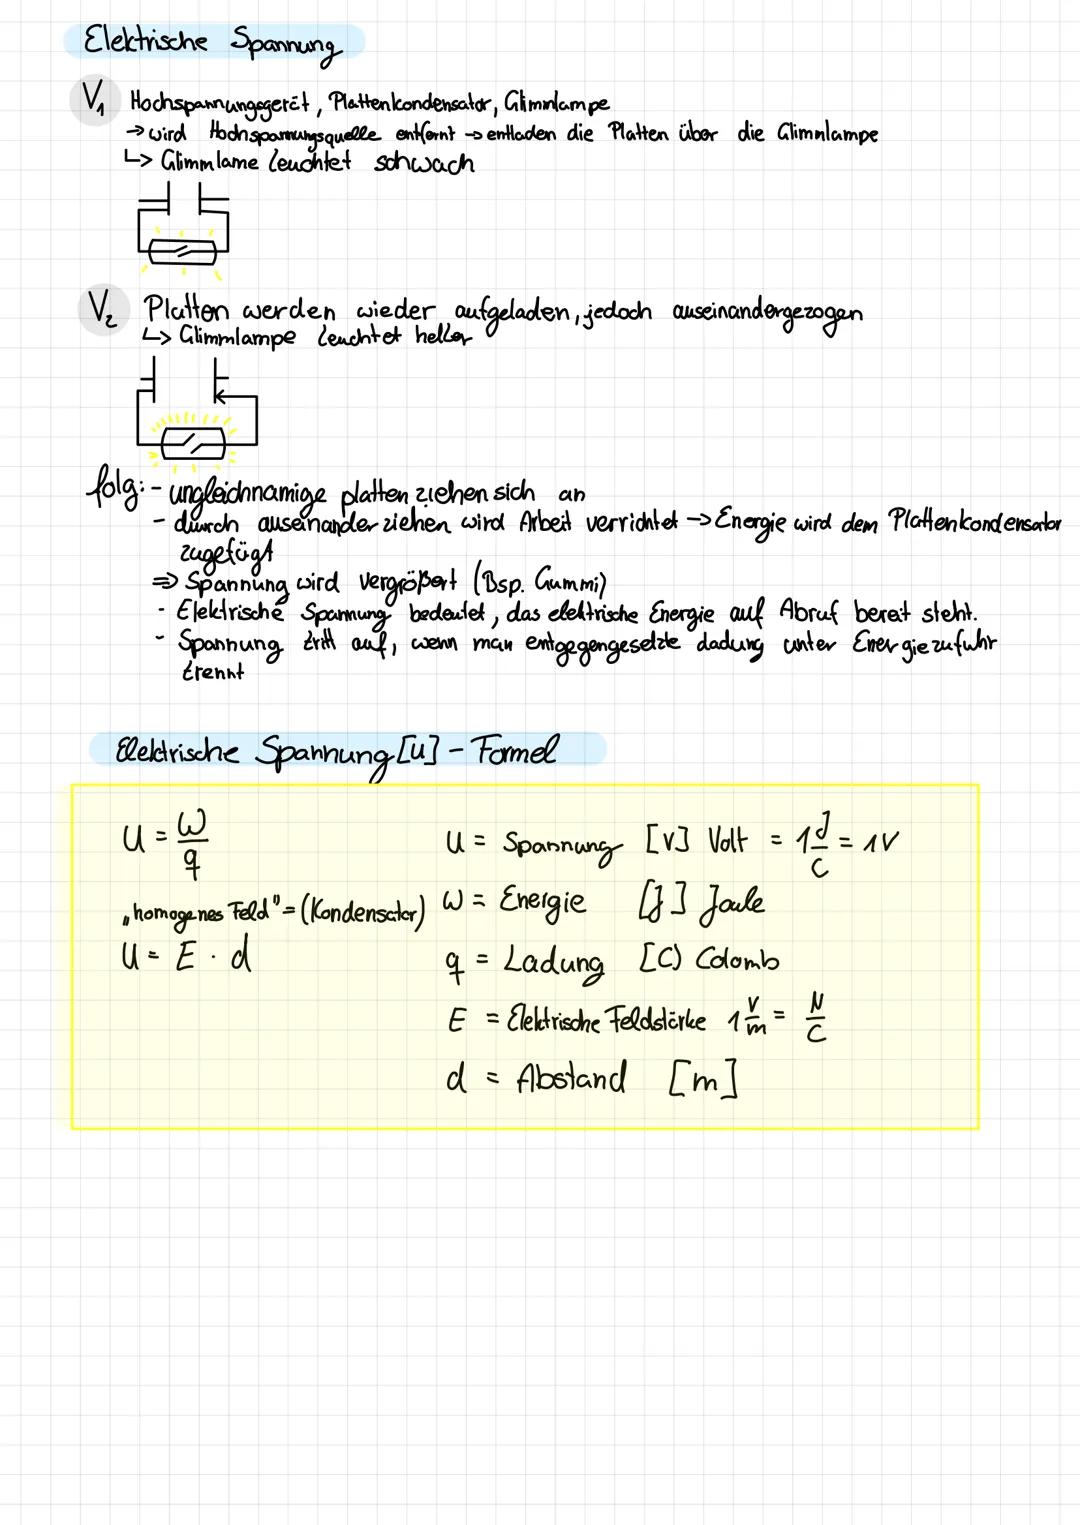 Elektrische Spannung
V₁ Hochspannungsgerät, Plattenkondensator, Glimmlampe
→ wird Hochspannungsquelle entfernt → entladen die Platten über die Glimmlampe
↳ Glimmlame leuchtet schwach
V₂ Platten werden wieder aufgeladen, jedoch auseinandergezogen
↳ Glimmlampe leuchtet heller
folg: - ungleichnamige platten ziehen sich an
- durch auseinander ziehen wird Arbeit verrichtet → Energie wird dem Plattenkondensator
zugefügt
⇒ Spannung wird vergrößert (Bsp. Gummi)
- Elektrische Spannung bedeutet, das elektrische Energie auf Abruf bereit steht.
- Spannung tritt auf, wenn man entgegengesetzte dadung unter Energiezufuhr
trennt
Elektrische Spannung [u] - Formel
U = W/q
U = Spannung [V] Volt = 1 J/C = 1V
„homogenes Feld" = (Kondensator)
W = Energie [J] Joule
U = E · d
q = Ladung [C) Colomb
E = Elektrische Feldstärke 1 V/m = N/C
d = Abstand [m]